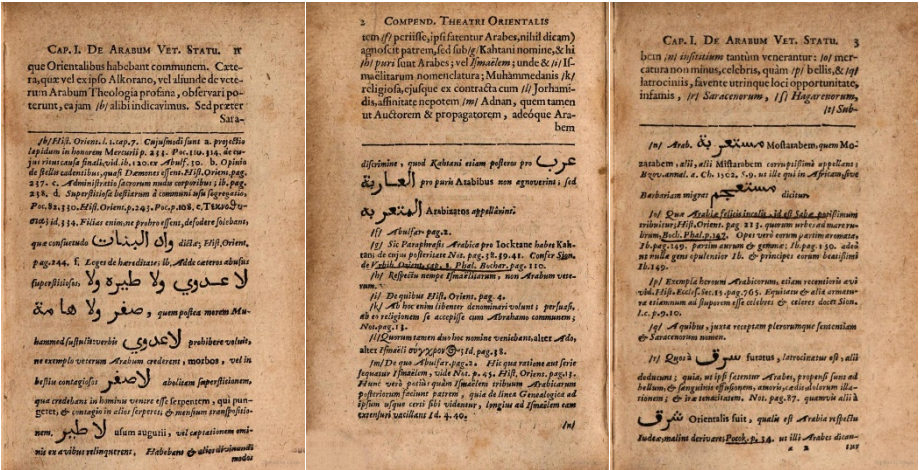 CAP. I. DE ARABUM VET. STATU. π
que Orientalibus habebant communem. Cæte-
ra, quæ vel ex ipso Alkorano, vel aliunde de vete-
rum Arabum Theologia profana, observari po-
terunt, ea jam /b/ alibi indicavimus. Sed præter
Sara-
/b/ Hist. Orient. l. 1. cap. 7. Cujusmodi sunt a. projectio
lapidum in honorem Mercurii p. 233. Poc. 310. 314. de cu-
jus ritus causa finali, vid. ib. 120. ex Abulf. 30. b. Opinio
de stella cadentibus, quasi Dæmones essent. Hist. Orient. pag.
237. c. Administratio sacrorum nudis corporibus; ib. pag.
238. d. Superstitiosa bestiarum à communi usu segregatio,
Poc. 82. 330. Hist. Orient. p. 243. Poc. p. 108. e.
id. 334. Filias enim, ne probro essent, defodere solebant,
quæ consuetudo واد البنات dicta; Hist. Orient.
pag. 244. f. Leges de hæreditate; ib. Adde cæteros abusus
superstitiosos, لا عدوي ولا طيره ولا
صفر ولا هامة, quem postea morem Mu-
hammed sustulit verbis لا عدوي prohibere voluit,
ne exemplo veterum Arabum crederent, morbos, vel in
bestiis contagiosos لا صفر abolitam superstitionem,
qua credebant in hominis ventre esse serpentem, qui pun-
geret; & contagio in alios serperet; & mensium transpositio-
nem. لا طير usum augurii, vel captationem omi-
nis ex avibus relinquerent. Habebant & alios divinandi
modos
2 COMPEND. THEATRI ORIENTALIS
tem /f/ periisse, ipsi fatentur Arabes, nihil dicam)
agnoscit patrem, sed sub /g/ Kahtani nomine, & hi
/h/ puri sunt Arabes; vel Ismaëlem; unde & /i/ Is-
maëlitarum nomenclatura; Muhammedanis /k/
religiosa, ejusque ex contracta cum /l/ Jorhami-
dis, affinitate nepotem /m/ Adnan, quem tamen
ut Auctorem & propagatorem, adeóque Ara-
bem
discrimine, quod Kahtani etiam posteros pro عرب
العاربة pro puris Arabibus non agnoverint; sed
المتعربه Arabizatos appellârint.
/f/ Abulfar. pag. 2.
/g/ Sic Paraphrasis Arabica pro Iocktane habet Kah-
tani; de cujus posteritate Not. pag. 38. 39. 41. Confer Sion.
de Vrbib. Orient. cap. 8. Phal. Bochar. pag. 110.
/h/ Respectu nempe Ismaëlitarum, non Arabum vete-
rum.
/i/ De quibus Hist. Orient. pag. 4.
/k/ Ab hoc enim libenter denominari volunt; persuasi,
ab eo religionem se accepisse cum Abrahamo communem;
Not. pag. 13.
/l/ Quorum tamen duo hoc nomine veniebant, alter Ado,
alter Ismaëli Id. pag. 38.
/m/ De quo Abulfar. pag. 2. Hic qua ratione aut serie
sequatur Ismaëlem, vide Not. p. 45. Hist. Orient. pag. 13.
Hunc verò potiùs quàm Ismaëlem tribuum Arabicarum
posteriorum faciunt patrem, quia de linea Genealogica ad
ipsum usque certi sibi videntur, longius ad Ismaëlem eam
extensuri vacillant Id. 4. 40.
/n/
CAP. I. DE ARABUM VET. STATU. 3
bem /n/ insititium tantùm venerantur: /o/ mer-
catura non minus, celebris, quàm /p/ bellis, & /q/
latrociniis, favente utrinque loci opportunitate,
infamis, /r/ Saracenorum, /s/ Hagarenorum,
/t/ Sub-
/n/ Arab. مستعربة Mostarabem, quem Mo-
zarabem, alii, alii Mistarabem corruptissimè appellant;
Bzov. annal. a. Ch. 1502. §. 9. ut ille qui in African sive
Barbariam migrat مستعجم dicitur.
/o/ Quæ Arabiæ felicis incolis, id est Sabæ potissimum
tribuitur; Hist. Orient. pag. 213. quorum urbes ad mare ru-
brum. Boch. Phal. p. 147. Opes verò eorum partim aromata,
Ib. pag. 149. partim aurum & gemmæ; Ib. pag. 150. adeò
ut nulla gens opulentior Ib. & principes eorum beatissimi
Ib. 149.
/p/ Exempla heroum Arabicorum, etiam recentioris ævi
vid. Hist. Eccles. Sec. 13. pag. 765. Equitatu & alia armatu-
ra etiamnum ad stuporem esse celebres & celeres docet Sion.
l. c. p. 9. 10.
/q/ A quibus, juxta receptam plerorumque sententiam
& Saracenorum nomen.
/r/ Quòd à سرق furatus, latrocinatus est, alii
deducunt; quia, ut ipsi fatentur Arabes, propensi sunt ad
bellum, & sanguinis effusionem, amoris, cædis, dolorum illa-
tionem; & iræ tenacitatem. Not. pag. 87. quamvis alii à
شرق Orientalis fuit, qualis est Arabia respectu
Iudeæ, malint derivare; Pocok. p. 34. ut illi Arabes dican-
a 2 tur